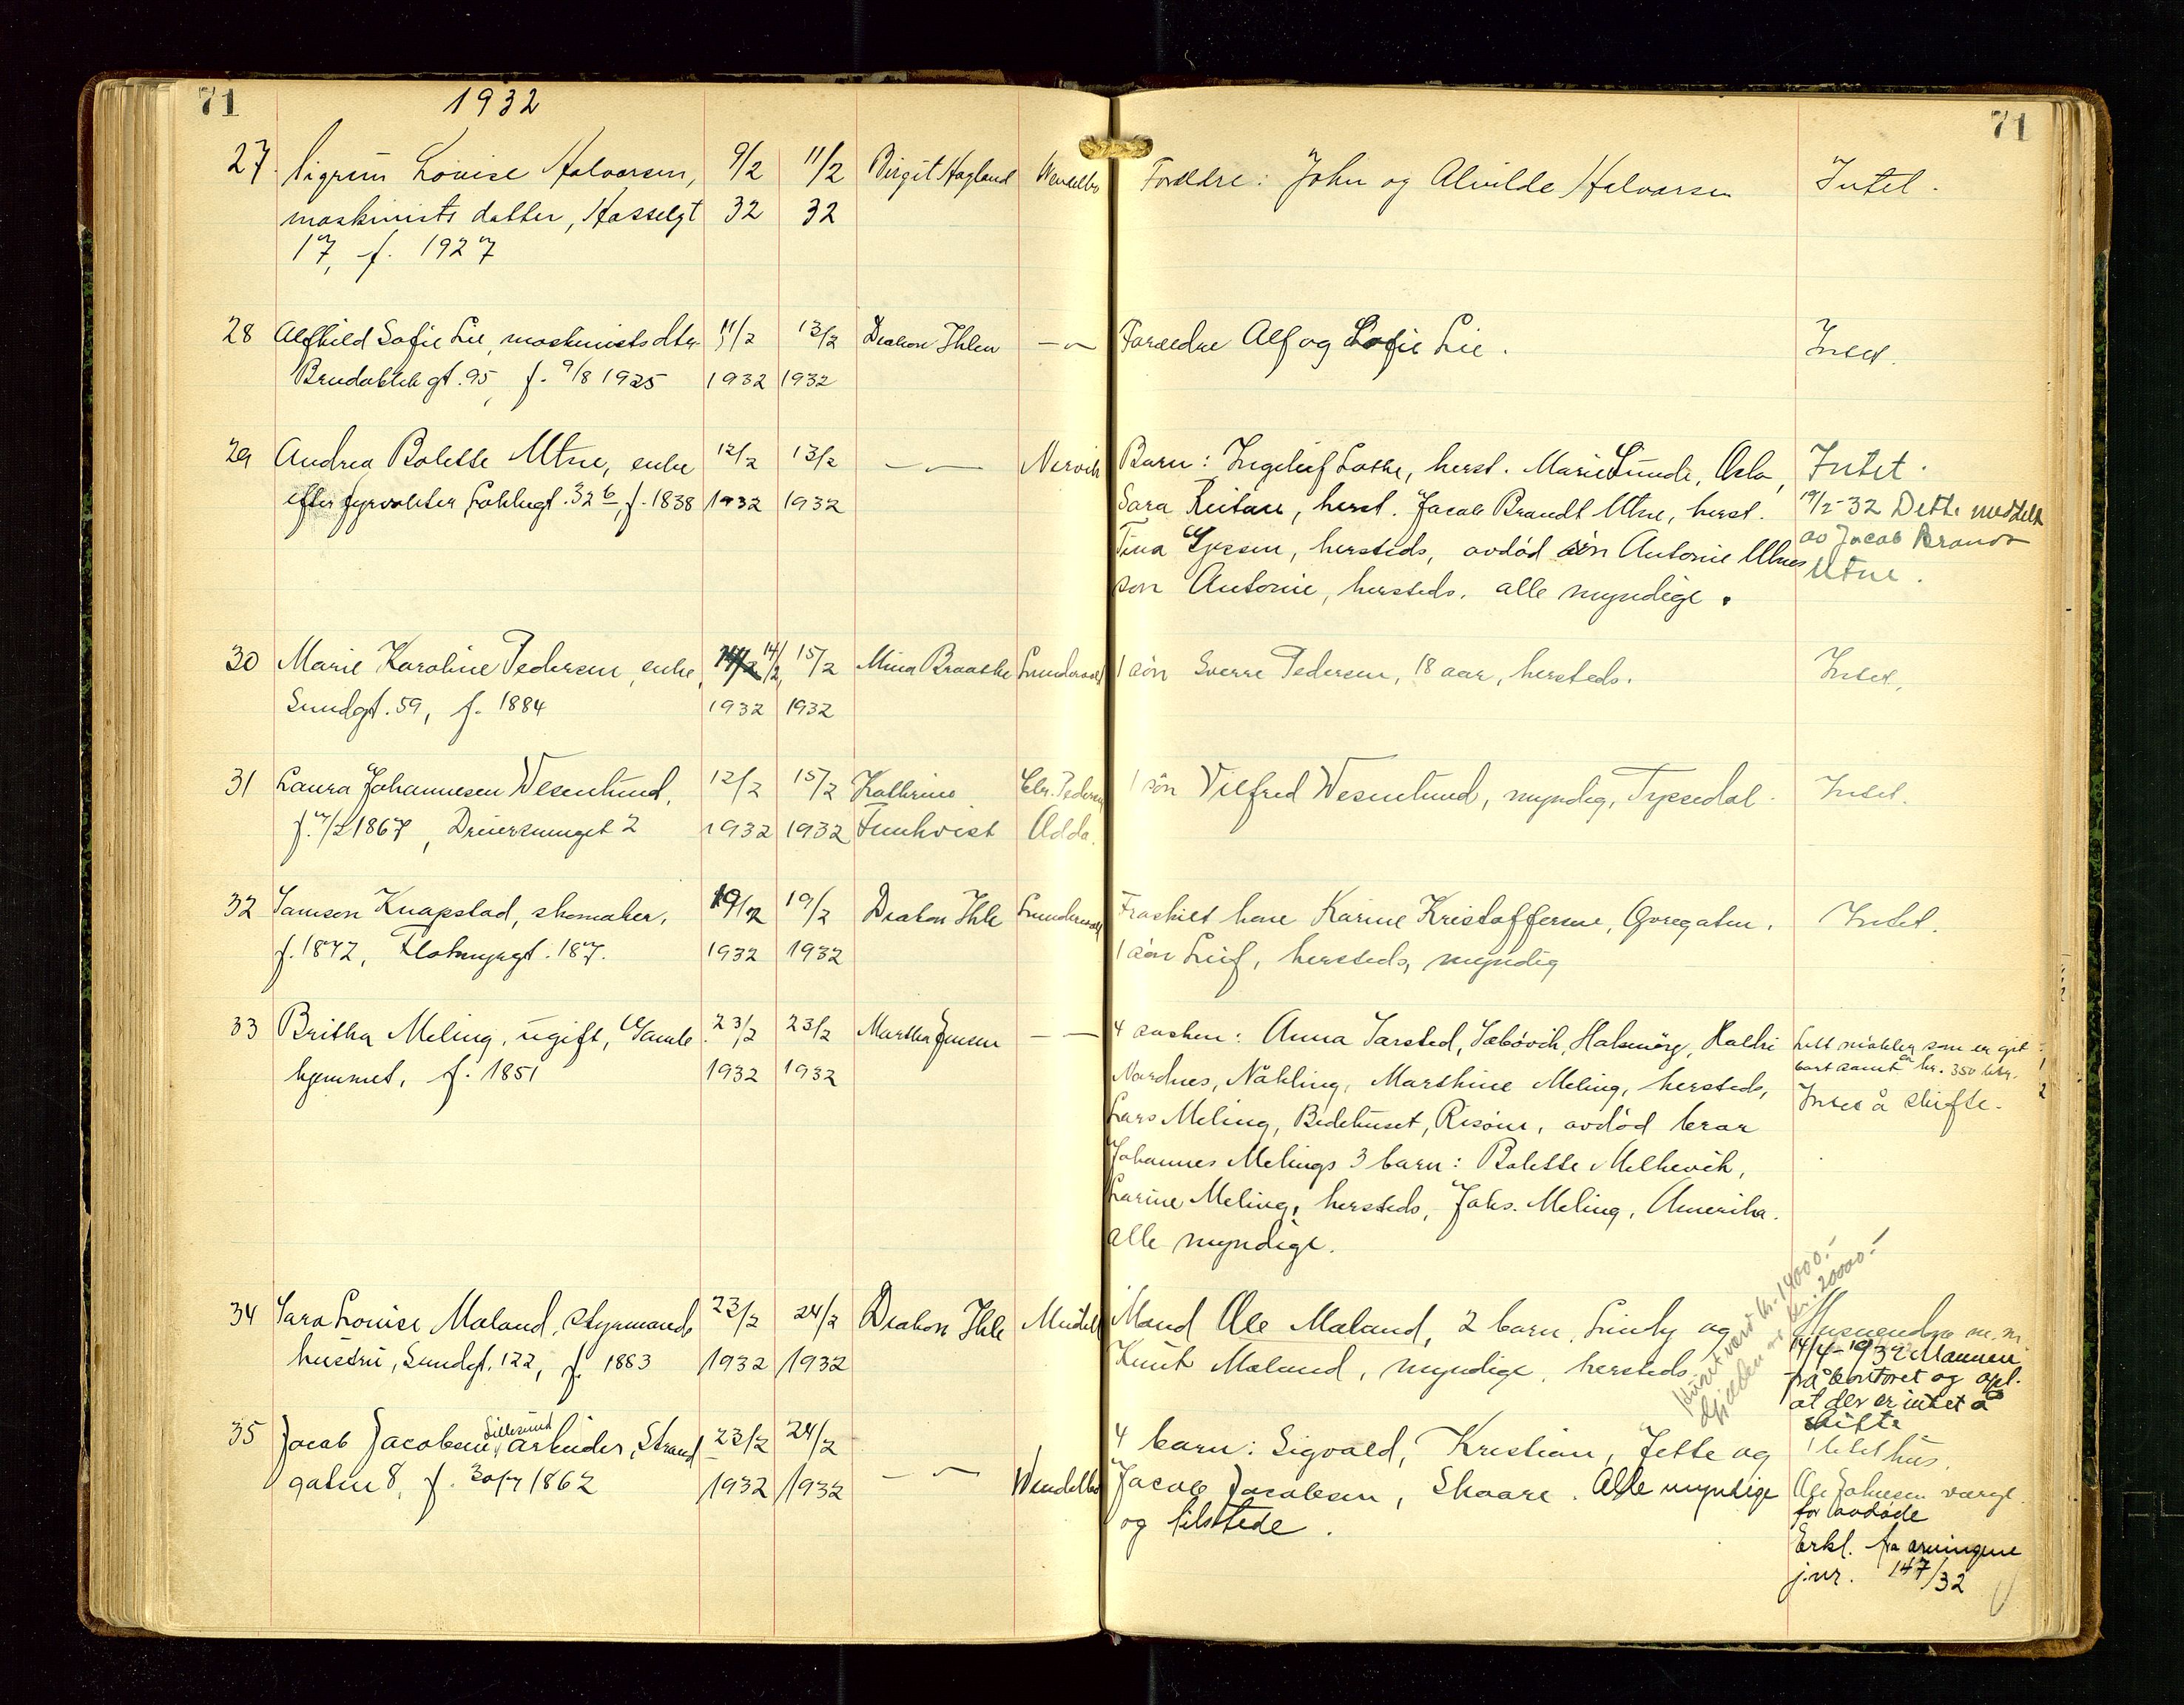 71
1932
71
27. Sigrun Lovise Halvorsen, 9/2 11/2 Birgit Hagland Wendelbo Forældre: John og Alvilde Halvorsen Intet.
maskinists datter, Hasselgt 32 32
17, f. 1927
28 Alfhild Sofie Lie, maskinists dtr. 11/2 13/2 Diakon Ihlen —"— Forældre Alf og Sofie Lie. Intet.
gt. 95, f. 9/8 1925 1932 1932
29 Andrea Bolette Utne, enke 12/2 13/2 —"— Nervik Barn: Ingeleif Lothe, herst. Marie Lunde, Oslo, Intet.
efter fyrvokter gt. 32 b, f. 1838 1932 1932 Sara Reitan, herst. Jacob Brandt Utne, herst. 19/2-32 Dette meddelt
Tina hersteds, avdød søn Antonie Utnes av Jacob Brandt
søn Antonie, hersteds. alle myndige. Utne.
30 Marie Karoline Pedersen, enke, 14/2 15/2 Mina Braathe 1 søn Sverre Pedersen, 18 aar, hersteds. Intet.
Sundgt. 59, f. 1884 1932 1932
31 Laura Johannesen Wesenlund, 12/2 15/2 Kathrine Chr. Pedersen 1 søn Vilfred Wesenlund, myndig, Tyssedal. Intet.
f. 7/2 1867, 2 1932 1932 Odda.
32 Samson Knapstad, skomaker, 19/2 19/2 Diakon Ihle Fraskilt kone Karine Kristoffersen, Øvregaten. Intet.
f. 1872, Flotmyrgt. 187. 1932 1932 1 søn Leif, hersteds, myndig
33 Britha Meling, ugift, Gamle 23/2 23/2 Martha Jensen —"— 4 søsken: Anna Sarsted, Halsnøy, Kathri Litt møbler som er git
hjemmet, f. 1851 1932 1932 Nordnes, Nåkling, Marthine Meling, hersteds, bort samt kr. 350 kr.
Lars Meling, Bedehuset, avdød bror Intet å skifte.
Johannes Melings 3 barn: Bolette Melkevik,
Larine Meling, hersteds, Johs. Meling, Amerika.
alle myndige.
Huset verd kr. 14000.-!
Gjælden kr. 20000.-!
34 Sara Lovise Maland, styrmands 23/2 24/2 Diakon Ihle Mand Ole Maland, 2 barn, og m. m.
hustru, Sundgt. 122, f. 1883 1932 1932 Knut Maland, myndige, hersteds. 14/4-1932 Mannen
på kontoret og opl.
at der er intet å
skifte
35 Jacob Jacobsen, Sillesund, arbeider, Strand 23/2 24/2 4 barn: Sigvald, Kristian, Jette og 1 litet hus.
gaten 8, f. 30/7 1862 1932 1932 —"— Wendelbo Jacob Jacobsen, Skaare. Alle myndige Ole Johnsen værge
og tilstede. for avdøde
Erkl. fra arvingene
j.nr. 147/32